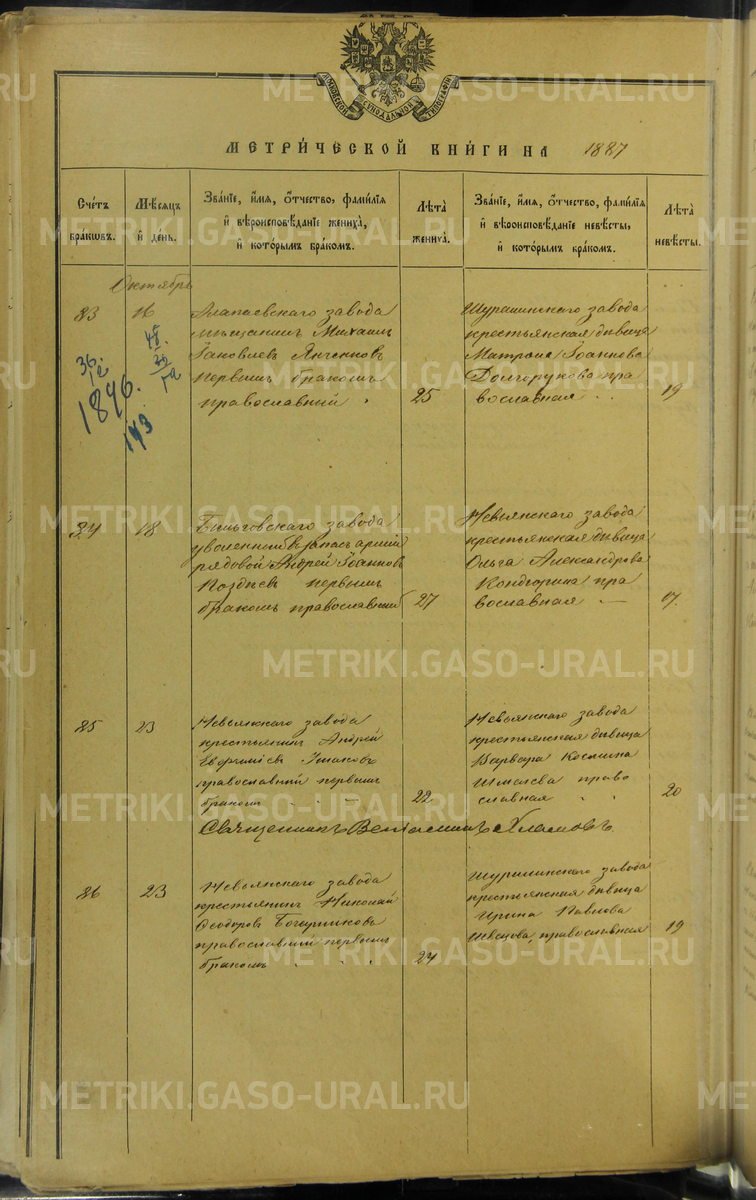 МЕТРИ́ЧЕСКОЙ КНИ́ГИ НА 1887
Сче́тъ бра́кωвъ.
Мѣ́сяцъ и҆ де́нь.
Зва́нїе, и҆́мя, ѻ҆́тчество, фами́лїя и҆ вѣроисповѣ́данїе жениха̀, и҆ кото́рымъ бра́комъ.
Лѣ́та жениха̀.
Зва́нїе, и҆́мя, ѻ҆́тчество, фами́лїя и҆ вѣроисповѣ́данїе невѣ́сты, и҆ кото́рымъ бра́комъ.
Лѣ́та невѣ́сты.
Октябрь
83 16
Алапаевскаго завода
мѣщанинъ Михаилъ
Іаковлев
первымъ бракомъ
православный
25
Шуралинскаго завода
крестьянская дѣвица
Матрона Іоаннова
Долгорукова пра
вославная
19
36.
12
1896.
143
48.
36
12
84 18
завода
уволенный въ запас арміи
рядовой Андрей Іоаннов
Позднев первымъ
бракомъ православный
27
Невьянскаго завода
крестьянская дѣвица
Ольга Александрова
Кондюрина пра
вославная —
17.
85 23
Невьянскаго завода
крестьянинъ Андрей
православный первымъ
бракомъ
22
Невьянскаго завода
крестьянская дѣвица
Варвара Космина
Шмелева право
славная
20
Священникъ Веніаминъ Хламовъ
86 23
Невьянскаго завода
крестьянинъ Николай
Ѳеодоров
православный первымъ
бракомъ
24
Шуралинскаго завода
крестьянская дѣвица
Ирина Павлова
Швецова, православная
19
METRIKI.GASO-URAL.RU